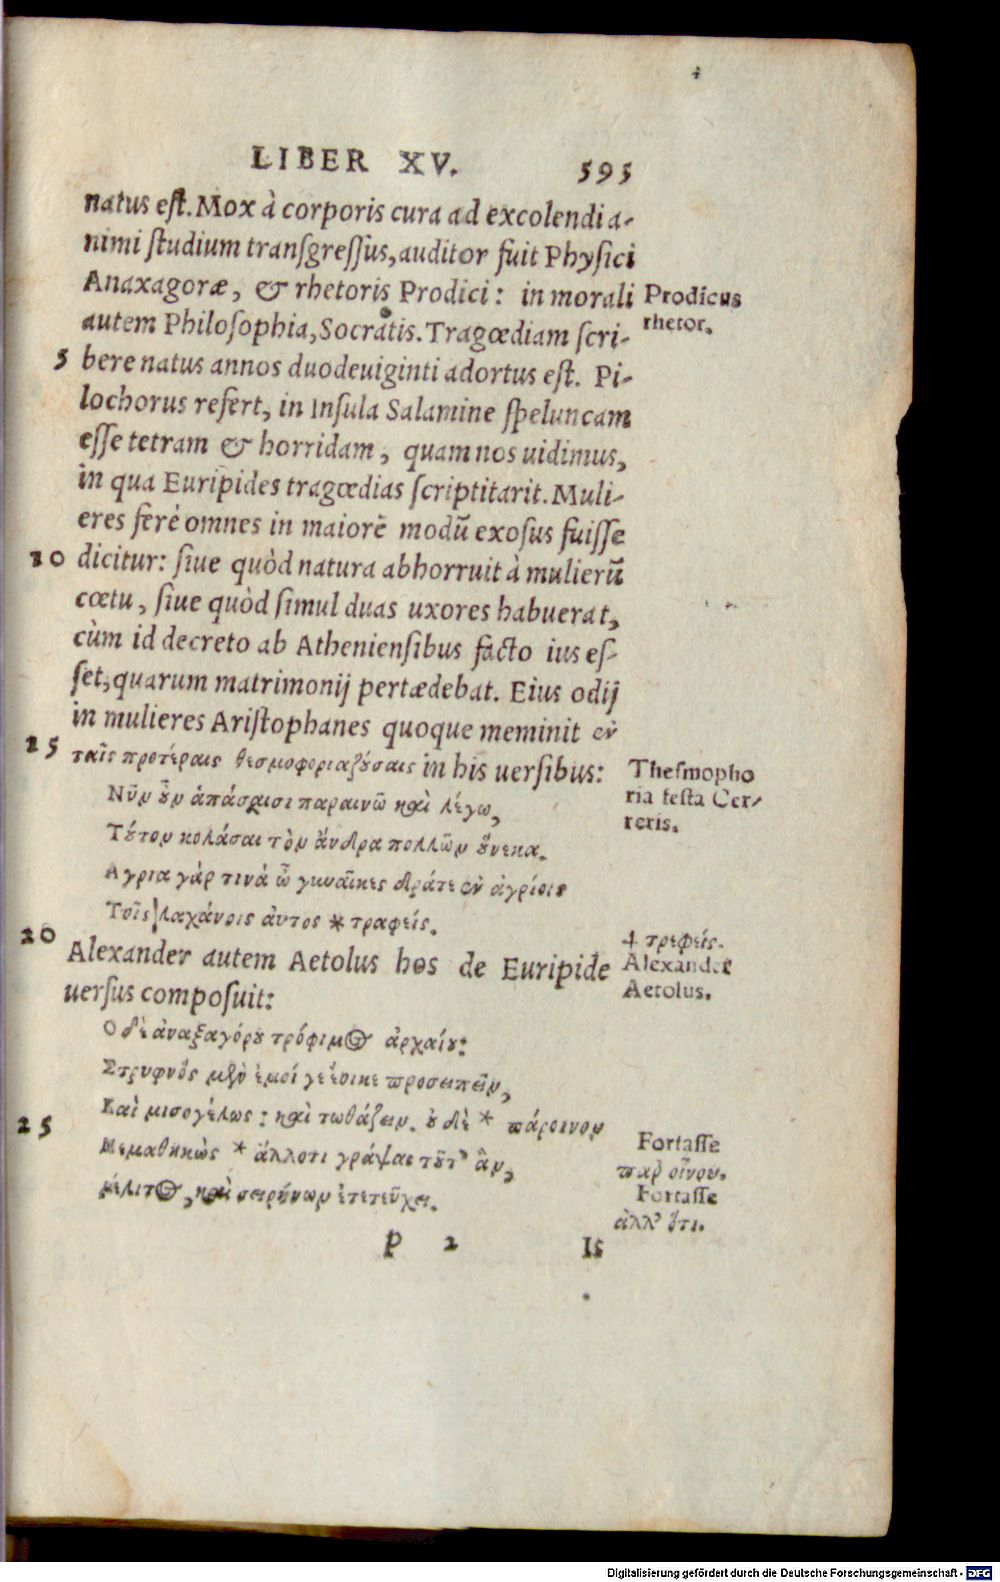 LIBER XV. 595
natus est. Mox à corporis cura ad excolendi a-
nimi studium transgressus, auditor fuit Physici
Anaxagoræ, & rhetoris Prodici: in morali
Prodicus
rhetor.
autem Philosophia, Socratis. Tragœdiam scri-
5 bere natus annos duodeuiginti adortus est. Pi-
lochorus refert, in Insula Salamine speluncam
esse tetram & horridam, quam nos uidimus,
in qua Euripides tragœdias scriptitarit. Muli-
eres ferè omnes in maiorē modū exosus fuisse
10 dicitur: siue quòd natura abhorruit à mulierū
cœtu, siue quòd simul duas uxores habuerat,
cùm id decreto ab Atheniensibus facto ius es-
set, quarum matrimonij pertædebat. Eius odij
in mulieres Aristophanes quoque meminit ἐν
15 ταῖς προτέραις θεσμοφοριαζούσαις in his uersibus:
Thesmopho
ria festa Cer-
reris.
Νῦν οὖν ἁπάσαισι παραινῶ καὶ λέγω,
Τούτον κολάσαι τὸν ἄνδρα πολλῶν οὕνεκα.
Αγρια γὰρ τινὰ ὦ γυναῖκες δράτε ἐν ἀγρίοις
Τοῖς λαχάνοις ἀυτος * τραφείς.
20 Alexander autem Aetolus hos de Euripide
4 τρεφείς.
Alexander
Aetolus.
uersus composuit:
Ο δὲ ἀναξαγόρου τρόφιμος ἀρχαίου:
Στρυφνὸς μὲν ἐμοί γε ἔοικε προσειπεῖν,
Καὶ μισογέλως: καὶ τωθάζειν. οὐ δὲ * πάροινον
25 Μεμαθηκὼς * ἄλλοτι γράψαι τοῦτ' ἂν,
μέλιτος, καὶ σειρήνων ἐτετεῦχει.
Fortasse
παρ' οἶνον.
Fortasse
ἀλλ' ὅτι.
P 2 Is
Digitalisierung gefördert durch die Deutsche Forschungsgemeinschaft - DFG